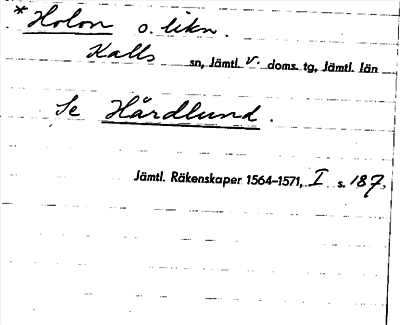 * Holon o. likn.
Kalls sn, Jämtl. v. doms. tg, Jämtl. län
Se Hårdlund.
Jämtl. Räkenskaper 1564–1571, I s. 187,